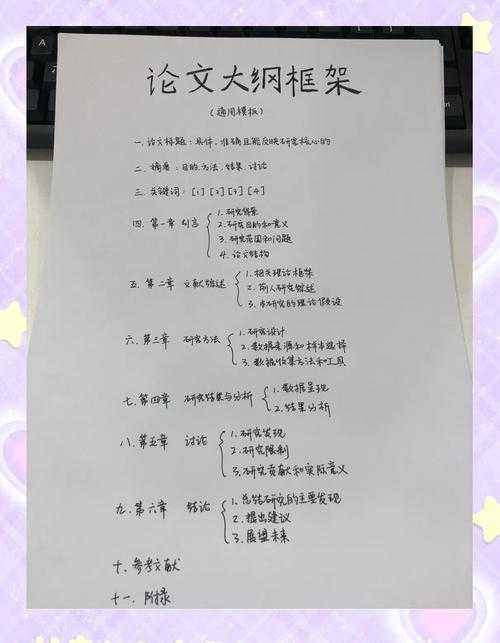 论文大纲框架
（通用模板）
一.论文标题：具体、准确且能反映研究核心的
二.摘要：目的.方法.结果.讨论
三.关键词：[1][2][3][4]
四.第一章 引言
1.研究背景
2.研究目的和意义
3.研究范围和问题
4.论文结构
五.第二章 文献综述
1.相关理论框架
2.前人研究综述
3.本研究的理论假设
六.第三章 研究方法
1.研究设计
2.数据来源和样本选择
3.数据收集方法和工具
七.第四章 研究结果与分析
1.数据呈现
2.结果分析
八.第五章 讨论
1.研究发现
2.研究限制
3.研究贡献和实际意义
九.第六章 结论
1.总结研究的主要发现
2.提出建议
3.展望未来
十.参考文献
十一.附录